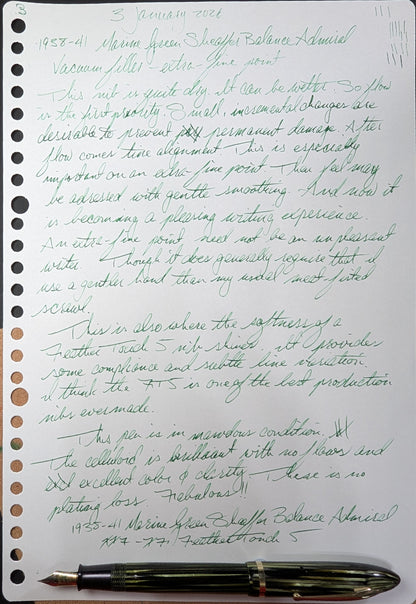 3
3 January 2026
1938-41 Marine Green Sheaffer Balance Admiral
Vacuum filler - extra-fine point
This nib is quite dry. It can be wetter. So flow
is the first priority. Small, incremental changes are
desirable to prevent permanent damage. After
flow comes tine alignment. This is especially
important on an extra-fine point. Then feel may
be adressed with gentle smoothing. And now it
is becoming a pleasing writing experience.
An extra-fine point need not be an unpleasant
writer. Though it does generally require that I
use a gentler hand than my usual meat-fisted
scrawl.
This is also where the softness of a
Feather Touch 5 nib shines. It provides
some compliance and subtle line variation.
I think the FT5 is one of the best production
nibs ever made.
This pen is in marvelous condition.
The celluloid is brilliant with no flaws and
excellent color & clarity. There is no
plating loss. Fabulous!!
1938-41 Marine Green Sheaffer Balance Admiral
Feather Touch 5